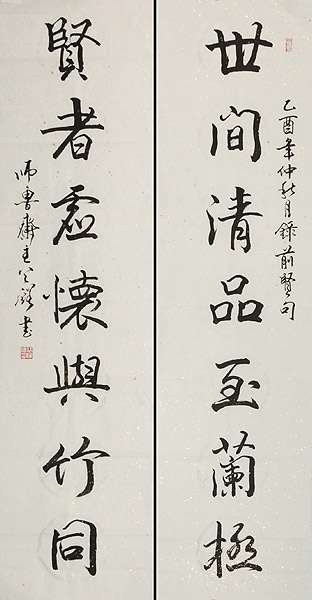 世間清品至蘭極
乙酉年仲秋月錄前賢句
賢者虛懷與竹同
師魯齋主人
書